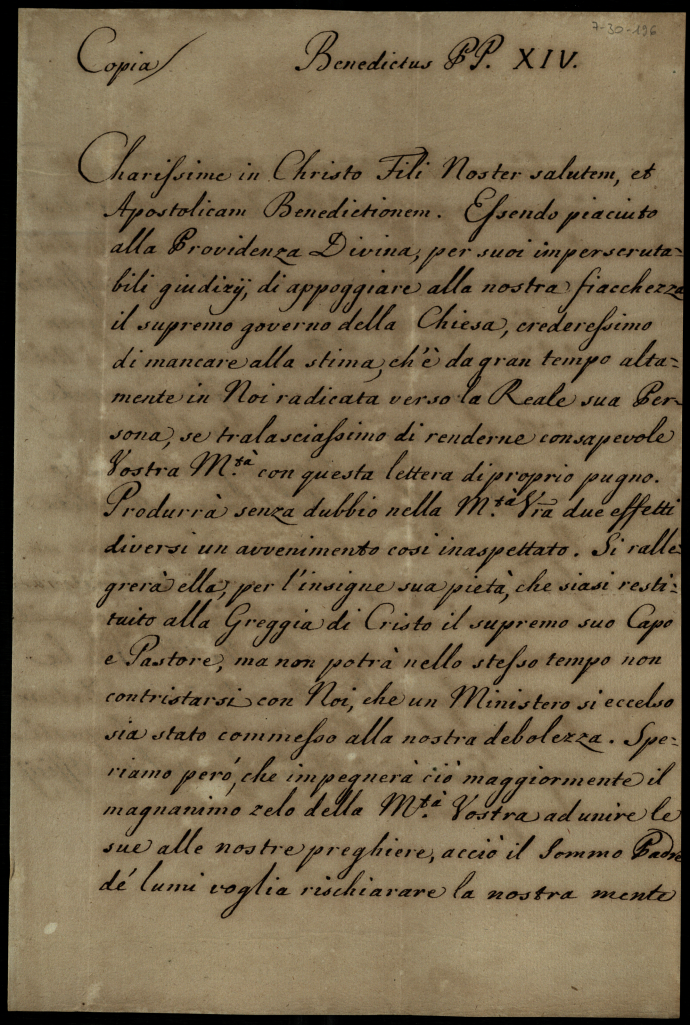 7-30-196
Copia/ Benedictus PP. XIV.
Charissime in Christo Fili Noster salutem, et
Apostolicam Benedictionem. Essendo piaciuto
alla Providenza Divina, per suoi imperscruta=
bili giudizÿ, di appoggiare alla nostra fiacchezza
il supremo governo della Chiesa, crederessimo
di mancare alla stima, ch'è da gran tempo alta=
mente in Noi radicata verso la Reale sua Per=
sona, se tralasciassimo di renderne consapevole
Vostra M.tà con questa lettera di proprio pugno.
Produrrà senza dubbio nella M.tà Vrā due effetti
diversi un avvenimento così inaspettato. Si ralle=
grerà ella, per l'insigne sua pietà, che siasi resti=
tuito alla Greggia di Cristo il supremo suo Capo
e Pastore, ma non potrà nello stesso tempo non
contristarsi con Noi, che un Ministero si eccelso
sia stato commesso alla nostra debolezza. Spe=
riamo però, che impegnerà ciò maggiormente il
magnanimo zelo della M.tà Vostra ad unire le
sue alle nostre preghiere, acciò il Sommo Padre
dé lumi voglia rischiarare la nostra mente